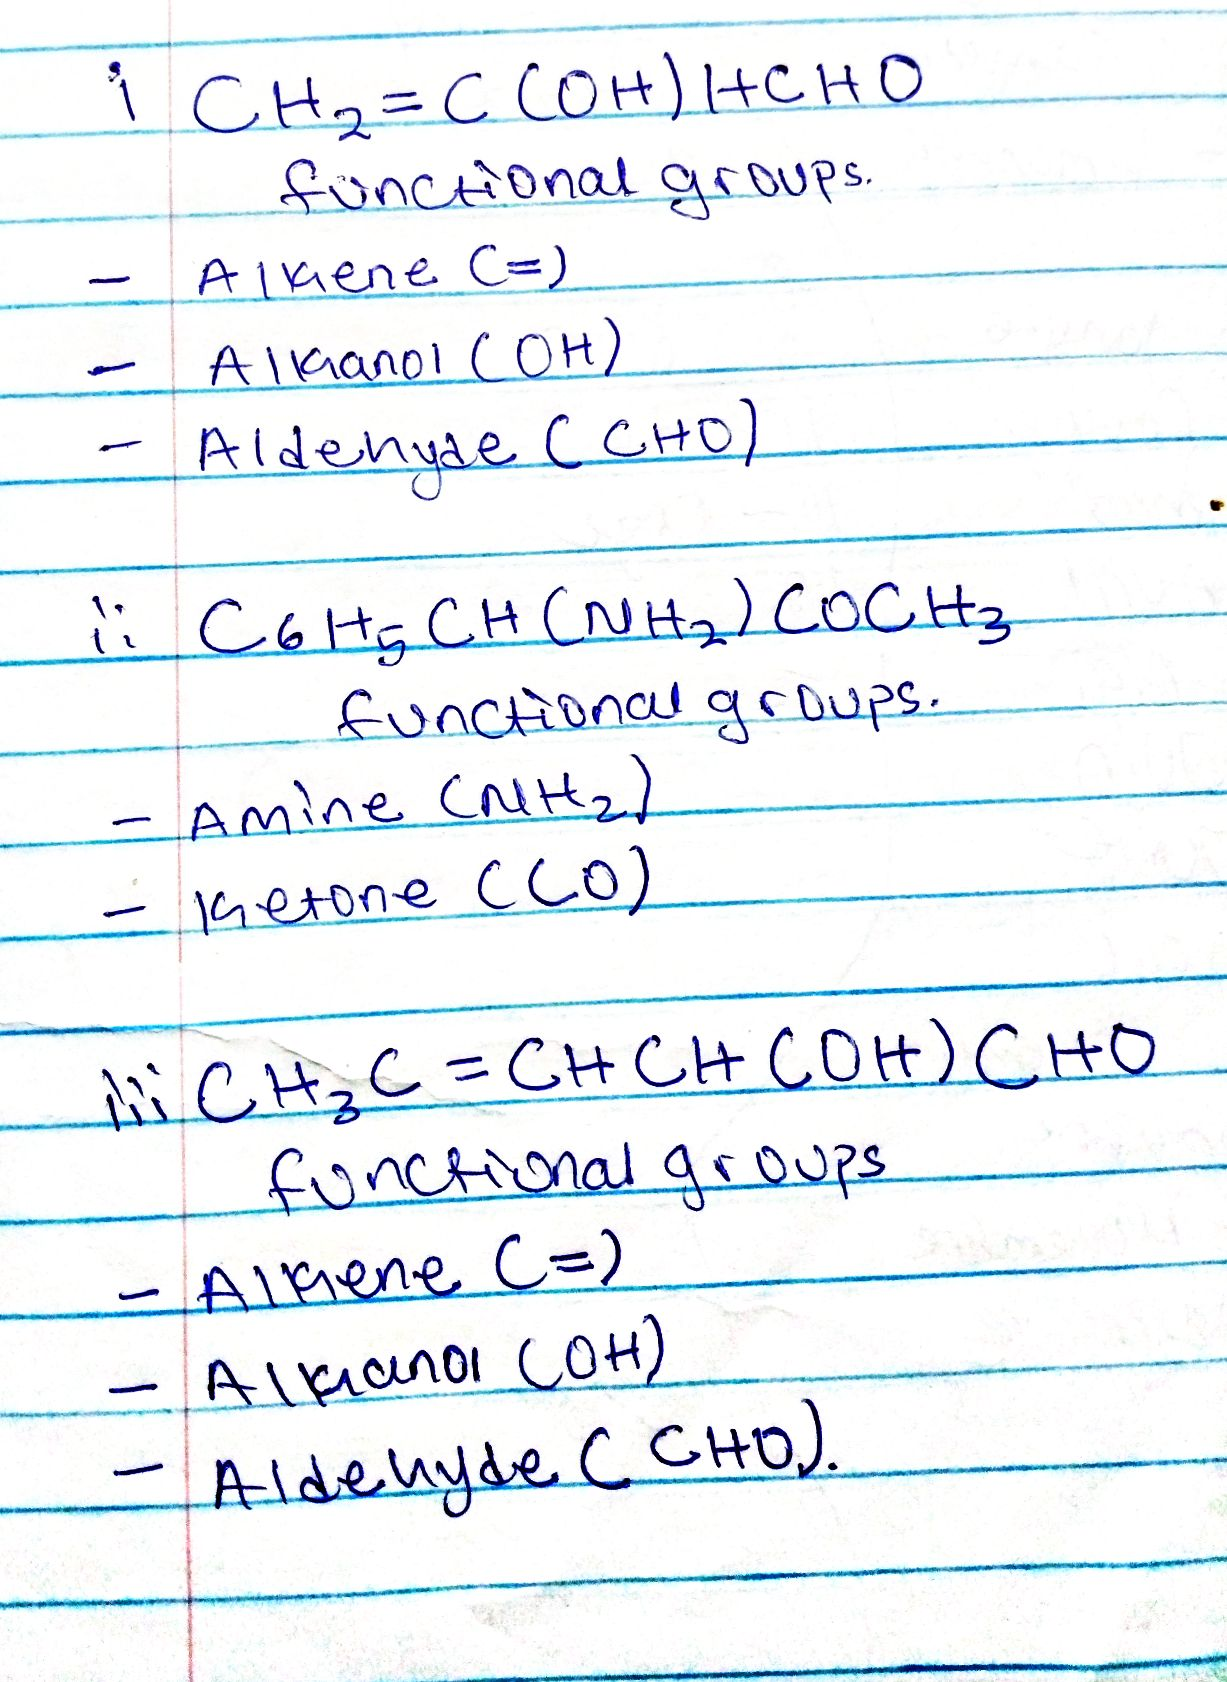 i CH₂=C(OH)HCHO
functional groups.
- Alkene (=)
- Alkanol (OH)
- Aldehyde (CHO)
ii C6H5CH(NH₂)COCH3
functional groups.
- Amine (NH2)
- Ketone (CO)
iii CH3C=CHCH(OH)CHO
functional groups
- Alkene (=)
- Alkanol (OH)
- Aldehyde (CHO).